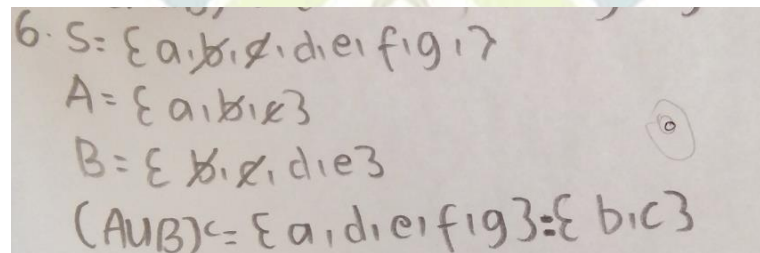 6. S= {a,b,c,d,e,f,g,}
A= {a,b,c}
B= {b,c,d,e}
(AUB)c= {a,d,e,f,g}={b,c}